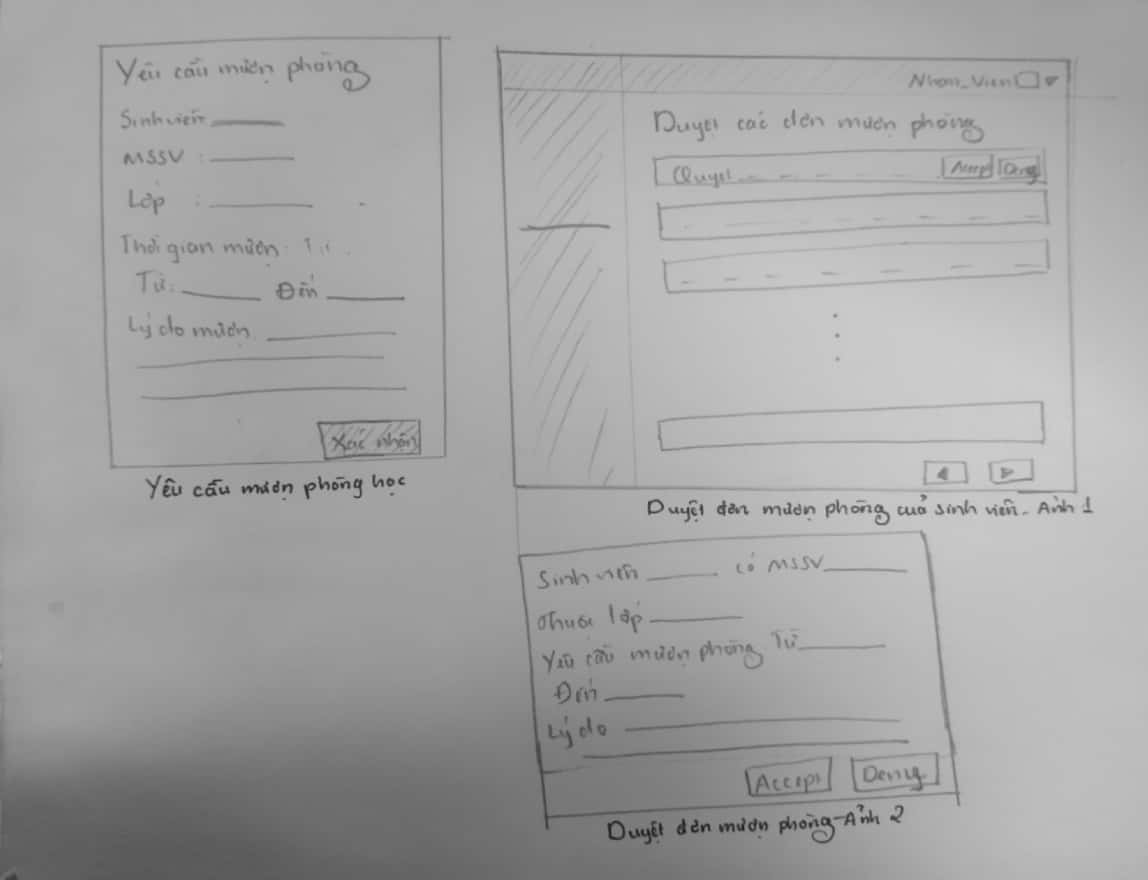 Yêu cầu mượn phòng
Sinh viên
MSSV :
Lớp :
Thời gian mượn :
Từ: Đến
Lý do mượn
Xác nhận
Yêu cầu mượn phòng học
Nhan_Vien
Duyệt các đơn mượn phòng
Accept Deny
Duyệt đơn mượn phòng của sinh viên - Ảnh 1
Sinh viên có MSSV
thuộc lớp
Yêu cầu mượn phòng Từ
Đến
Lý do
Accept Deny
Duyệt đơn mượn phòng - Ảnh 2